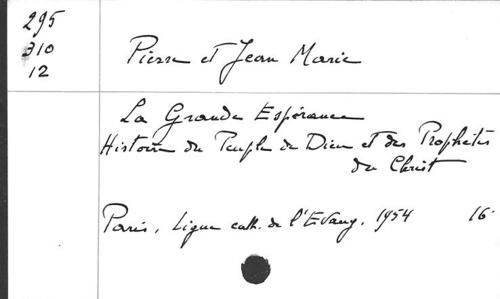 295
310
12
Pierre et Jean Marie
La Grande Espérance
Histoire du Peuple de Dieu et des Prophètes
du Christ
Paris, Ligue cath. de l'Evang. 1954 16°